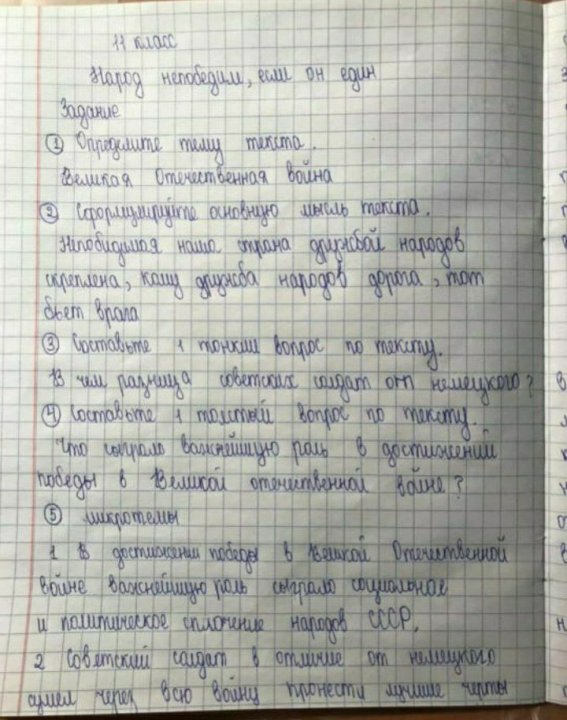 11 класс
Народ непобедим, если он един
Задание
① Определите тему текста.
Великая Отечественная война
② Сформулируйте основную мысль текста.
Непобедимая наша страна дружбой народов
скреплена, кому дружба народов дорога, тот
бьет врага
③ Составьте 1 тонкий вопрос по тексту.
В чем разница советских солдат от немецкого?
④ Составьте 1 толстый вопрос по тексту.
Что сыграло важнейшую роль в достижений
победы в Великой отечественной войне?
⑤ микротемы
1 В достижении победы в Великой Отечественной
войне важнейшую роль сыграло социальное
и политическое сплочение народов СССР.
2 Советский солдат в отличие от немецкого
сумел через всю войну пронести лучшие черты